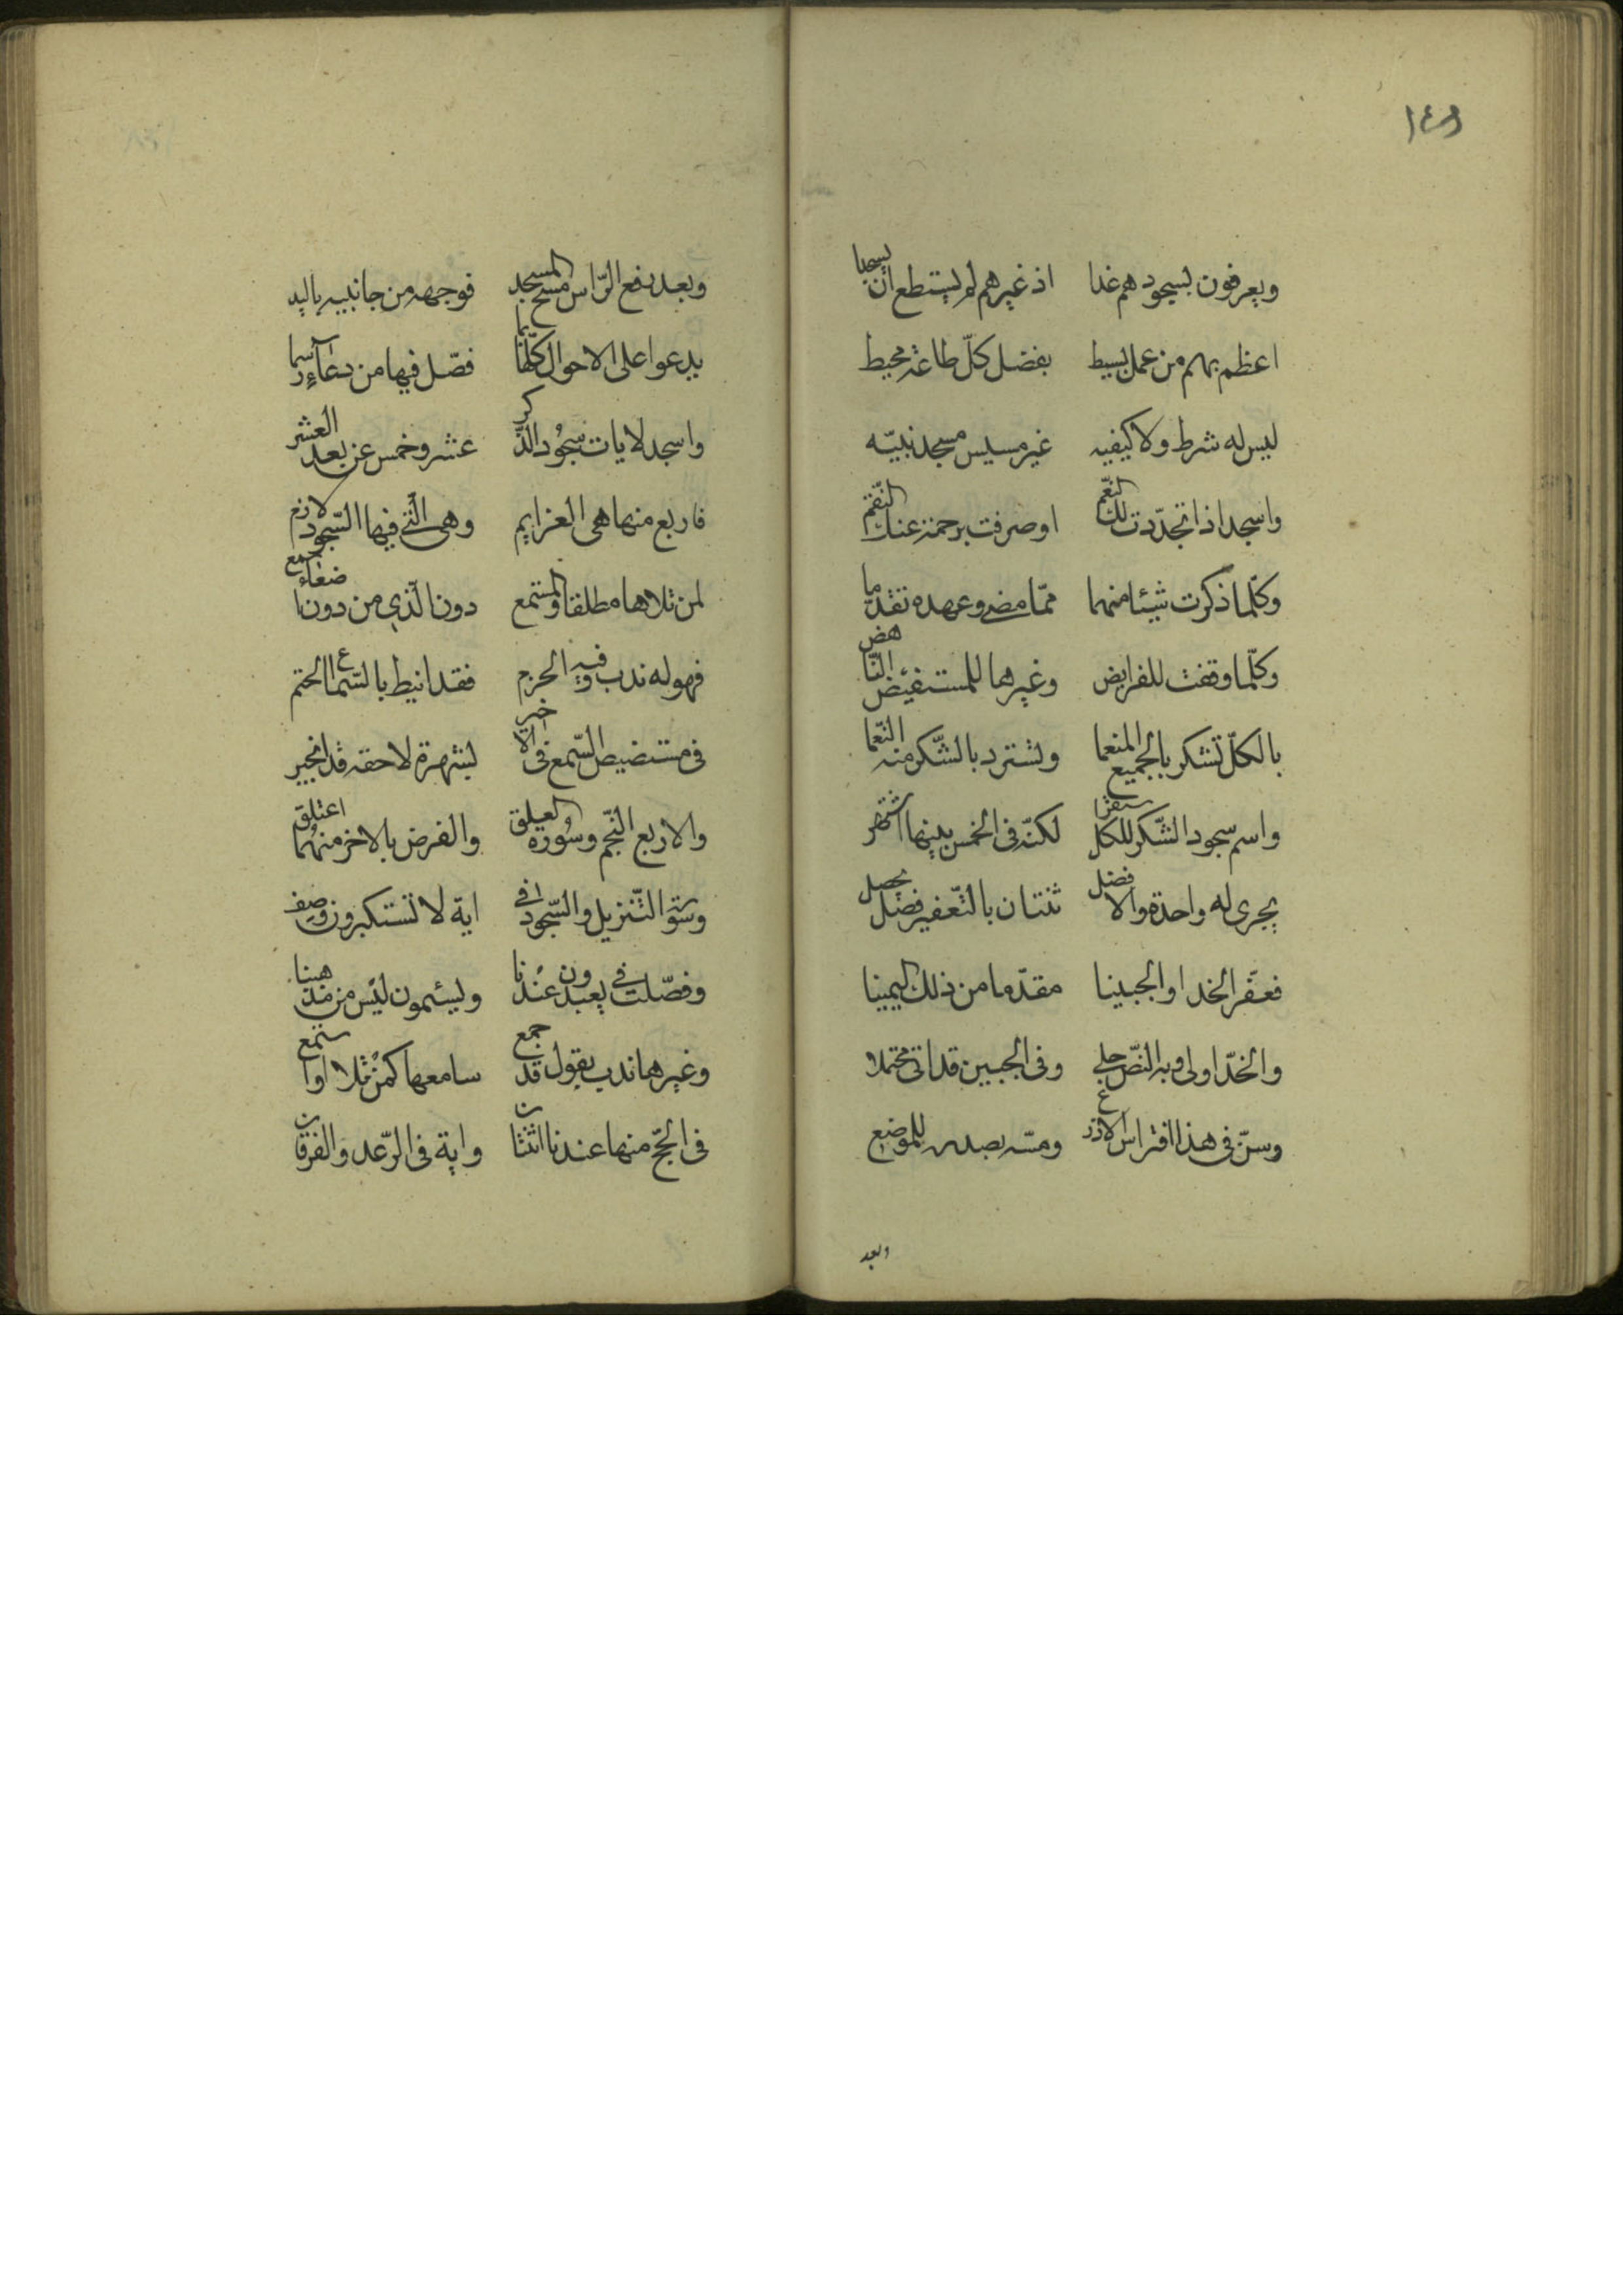 ويعرفون بسجودهم غدا اذ غيرهم لم يستطع ان يسجدا
اعظم بهم من عمل بسيط بفضل كل طاعة محيط
ليس له شرط ولا كيفيه غير مسيس مسجد بنيّه
واسجد اذا تجدّدت لك النّعم او صرفت برحمة عنك النّقم
وكلّما ذكرت شيئا منهما ممّا مضى وعهده تقدّما
وكلّما وقفت للفرايض وغيرها للمستفيض النّاهض
بالكلّ تشكر بالجميع المنعما وتستزد بالشّكر منه النّعما
واسم سجود الشّكر للكل سفر لكنّه فى الخمس بينها اشتهر
يجرى له واحدة والافضل ثنتان بالتّعفير فصل يحصل
فعفّر الخد او الجبينا مقدّما من ذلك اليمينا
والخدّ اولى وبه النّص جلى وفى الجبين قد اتى محتملا
وسنّ فى هذا افتراس الاذرع ومسّه بصدره للموضع
وبعد
وبعد رفع الرّاس مسح المسجد فوجهه من جانبيه باليد
يدعوا على الاحوال كلّها بما فصّل فيها من دعاء رسما
واسجد لايات سجود الذّكر عشر وخمس عن بعد العشر
فاربع منها هى العزايم وهى الّتى فيها السّجود لازم
لمن تلاها مطلقا والمستمع دون الّذى من دون اصغاء سمع
فهو له ندب وفيه الحزم فقد انيط بالسّماع الحتم
فى مستفيض السّمع فى الاخبر بشهرة لاحقه قد انجبر
والاربع النّجم وسوره العلق والفرض بالاخر منهما اعتلق
وسورة التّنزيل والسّجود فى اية لا تستكبرون وصف
وفصّلت فى يعبدون عندنا ويسئمون ليس من مذهبنا
وغيرها ندب بقول قد جمع سامعها كمن تلا او استمع
فى الحجّ منها عندنا اثنتان واية فى الرّعد والفرقان